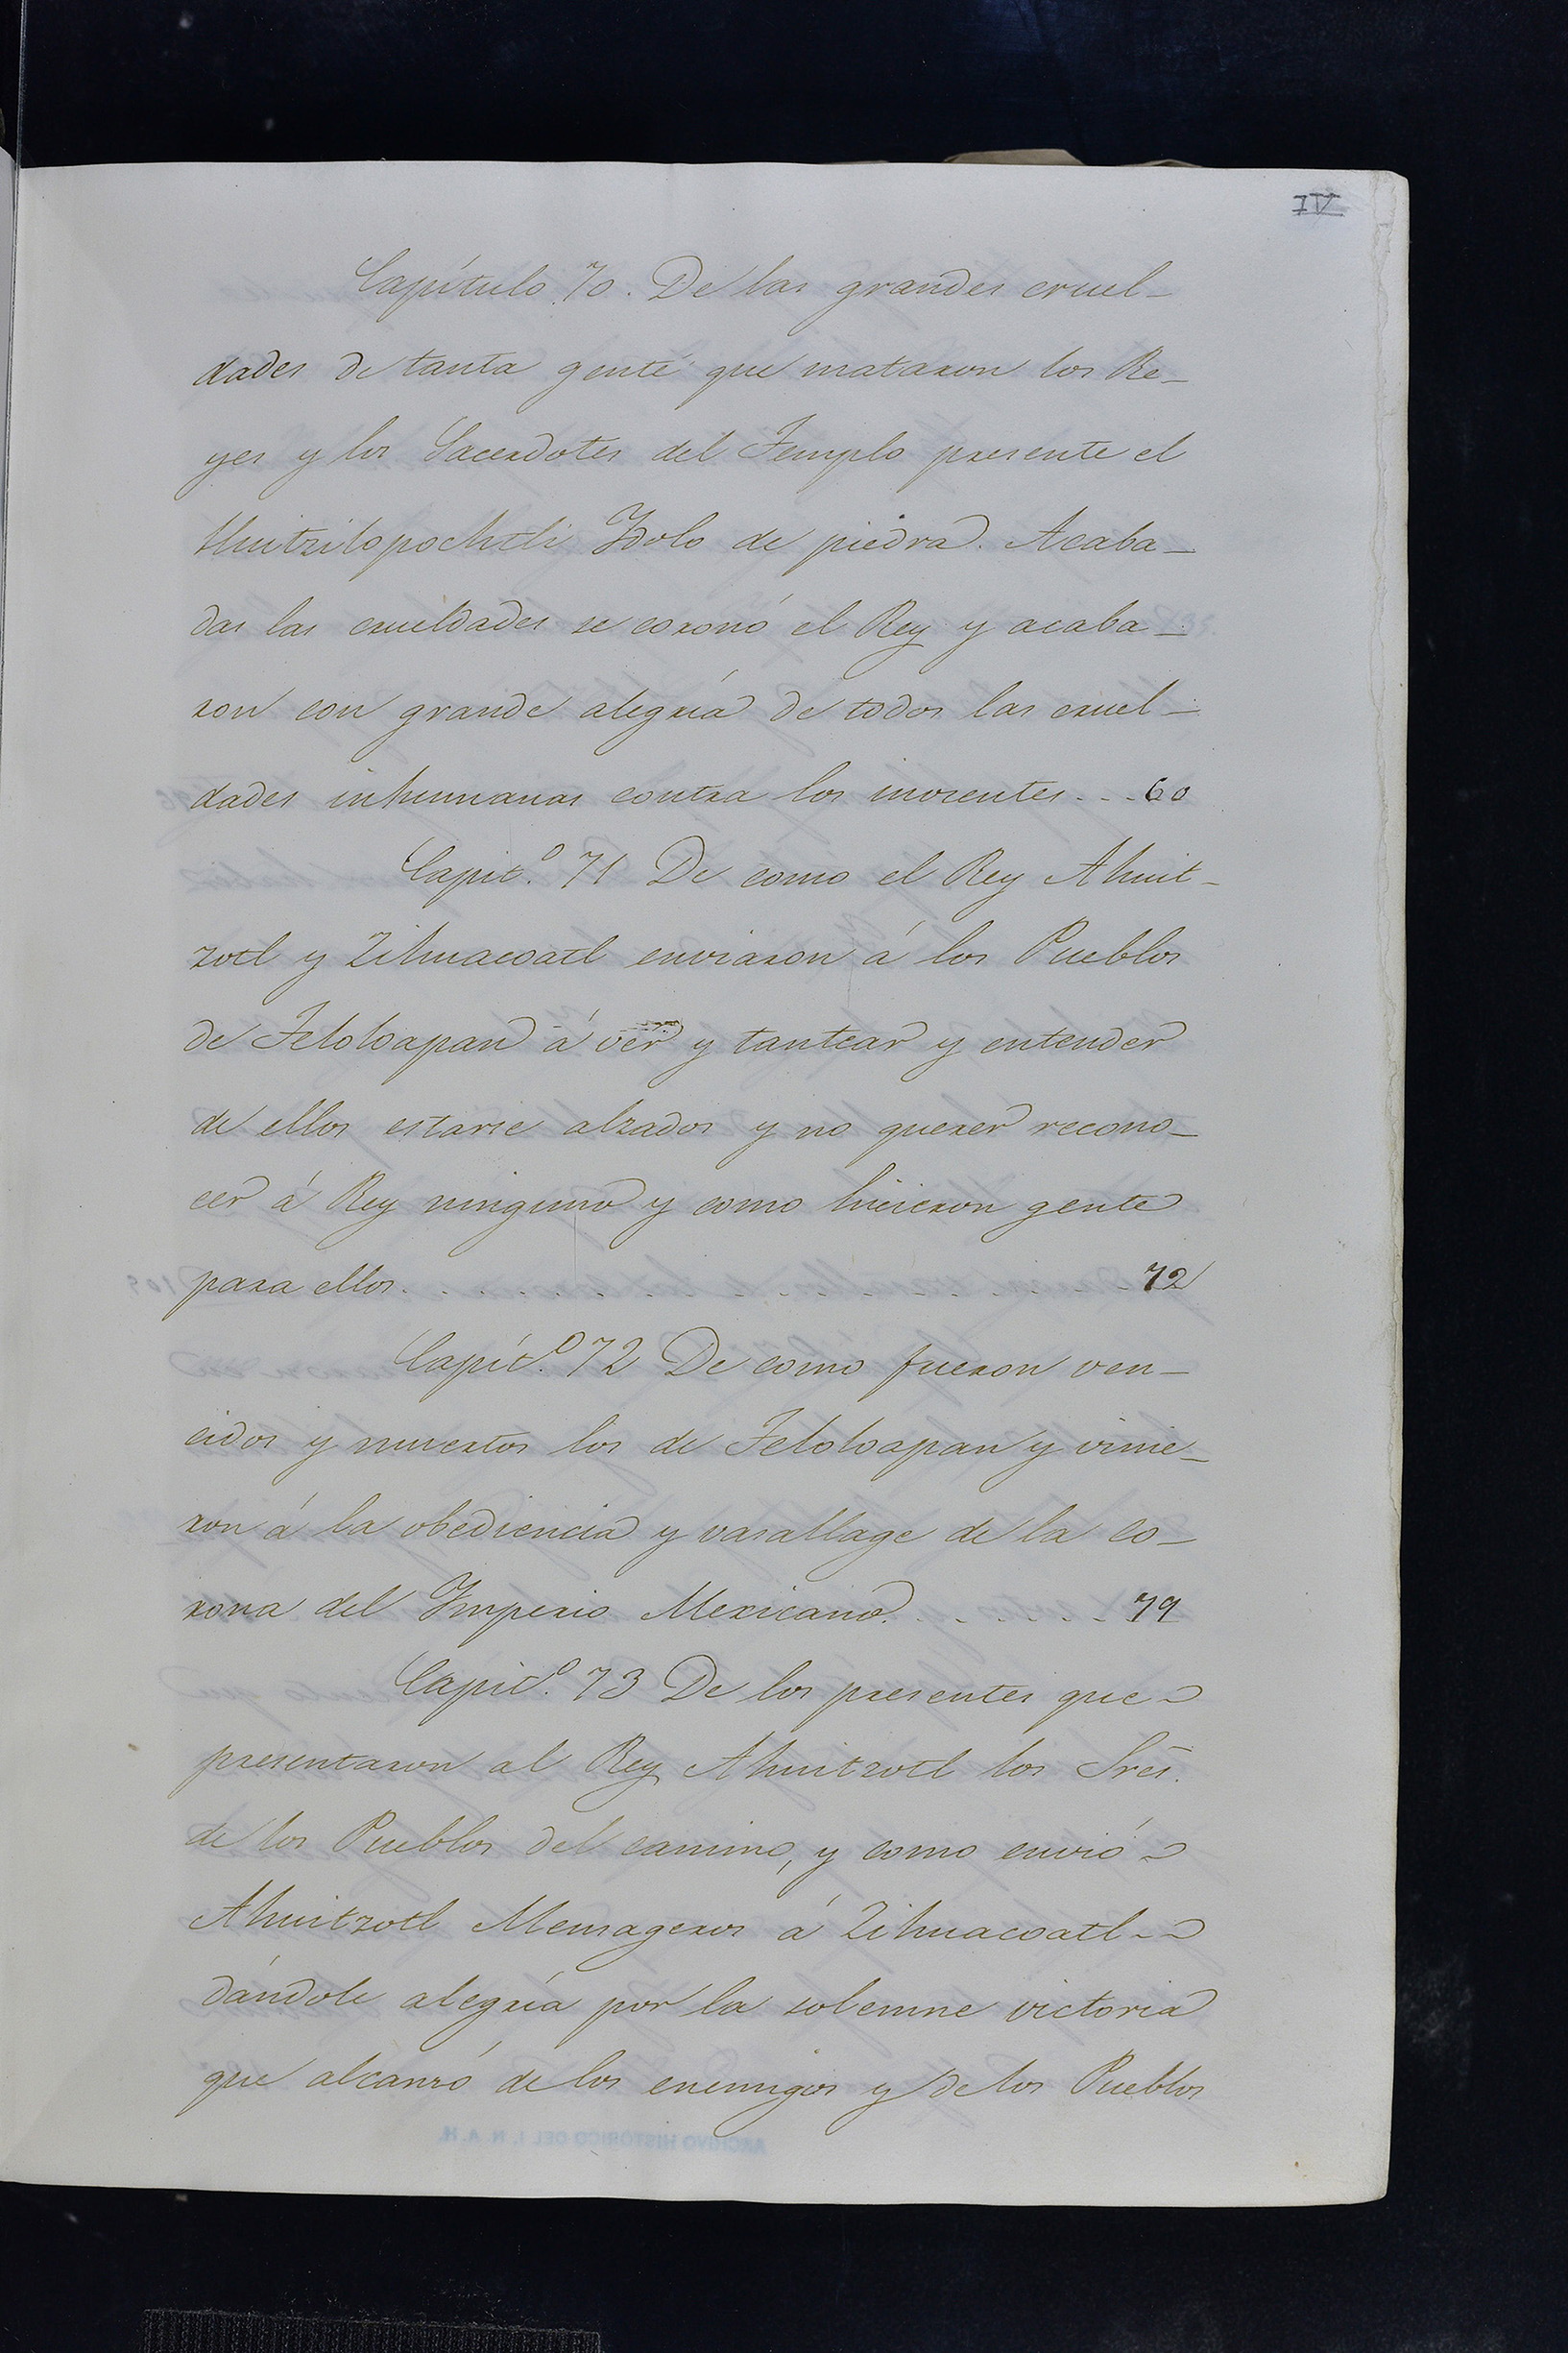 IV
Capítulo 70. De las grandes cruel-
dades de tanta gente que mataron los Re-
yes y los Sacerdotes del Templo presente el
Huitzilopochtli Ydolo de piedra. Acaba-
das las crueldades se coronó el Rey y acaba-
ron con grande alegría de todos las cruel-
dades inhumanas contra los inosentes... 60
Capit.º 71 De como el Rey Ahuit-
zotl y Zihuacoatl enviaron á los Pueblos
de Teloloapan á ver y tantear y entender
de ellos estarse alzados y no querer recono-
cer á Rey ninguno y como hicieron gente
para ellos. . . . . . . . . . 72
Capít.º 72 De como fueron ven-
cidos y muertos los de Teloloapan y vinie-
ron á la obediencia y vasallage de la co-
rona del Ymperio Mexicano. . . . . . . 79
Capit.º 73 De los presentes que
presentaron al Rey Ahuitzotl los Sres.
de los Pueblos del camino, y como envió
Ahuitzotl Mensageros á Zihuacoatl--
dándole alegría por la solemne victoria
que alcanzó de los enemigos y de los Pueblos
ARCHIVO HISTORICO DEL I. N. A. H.